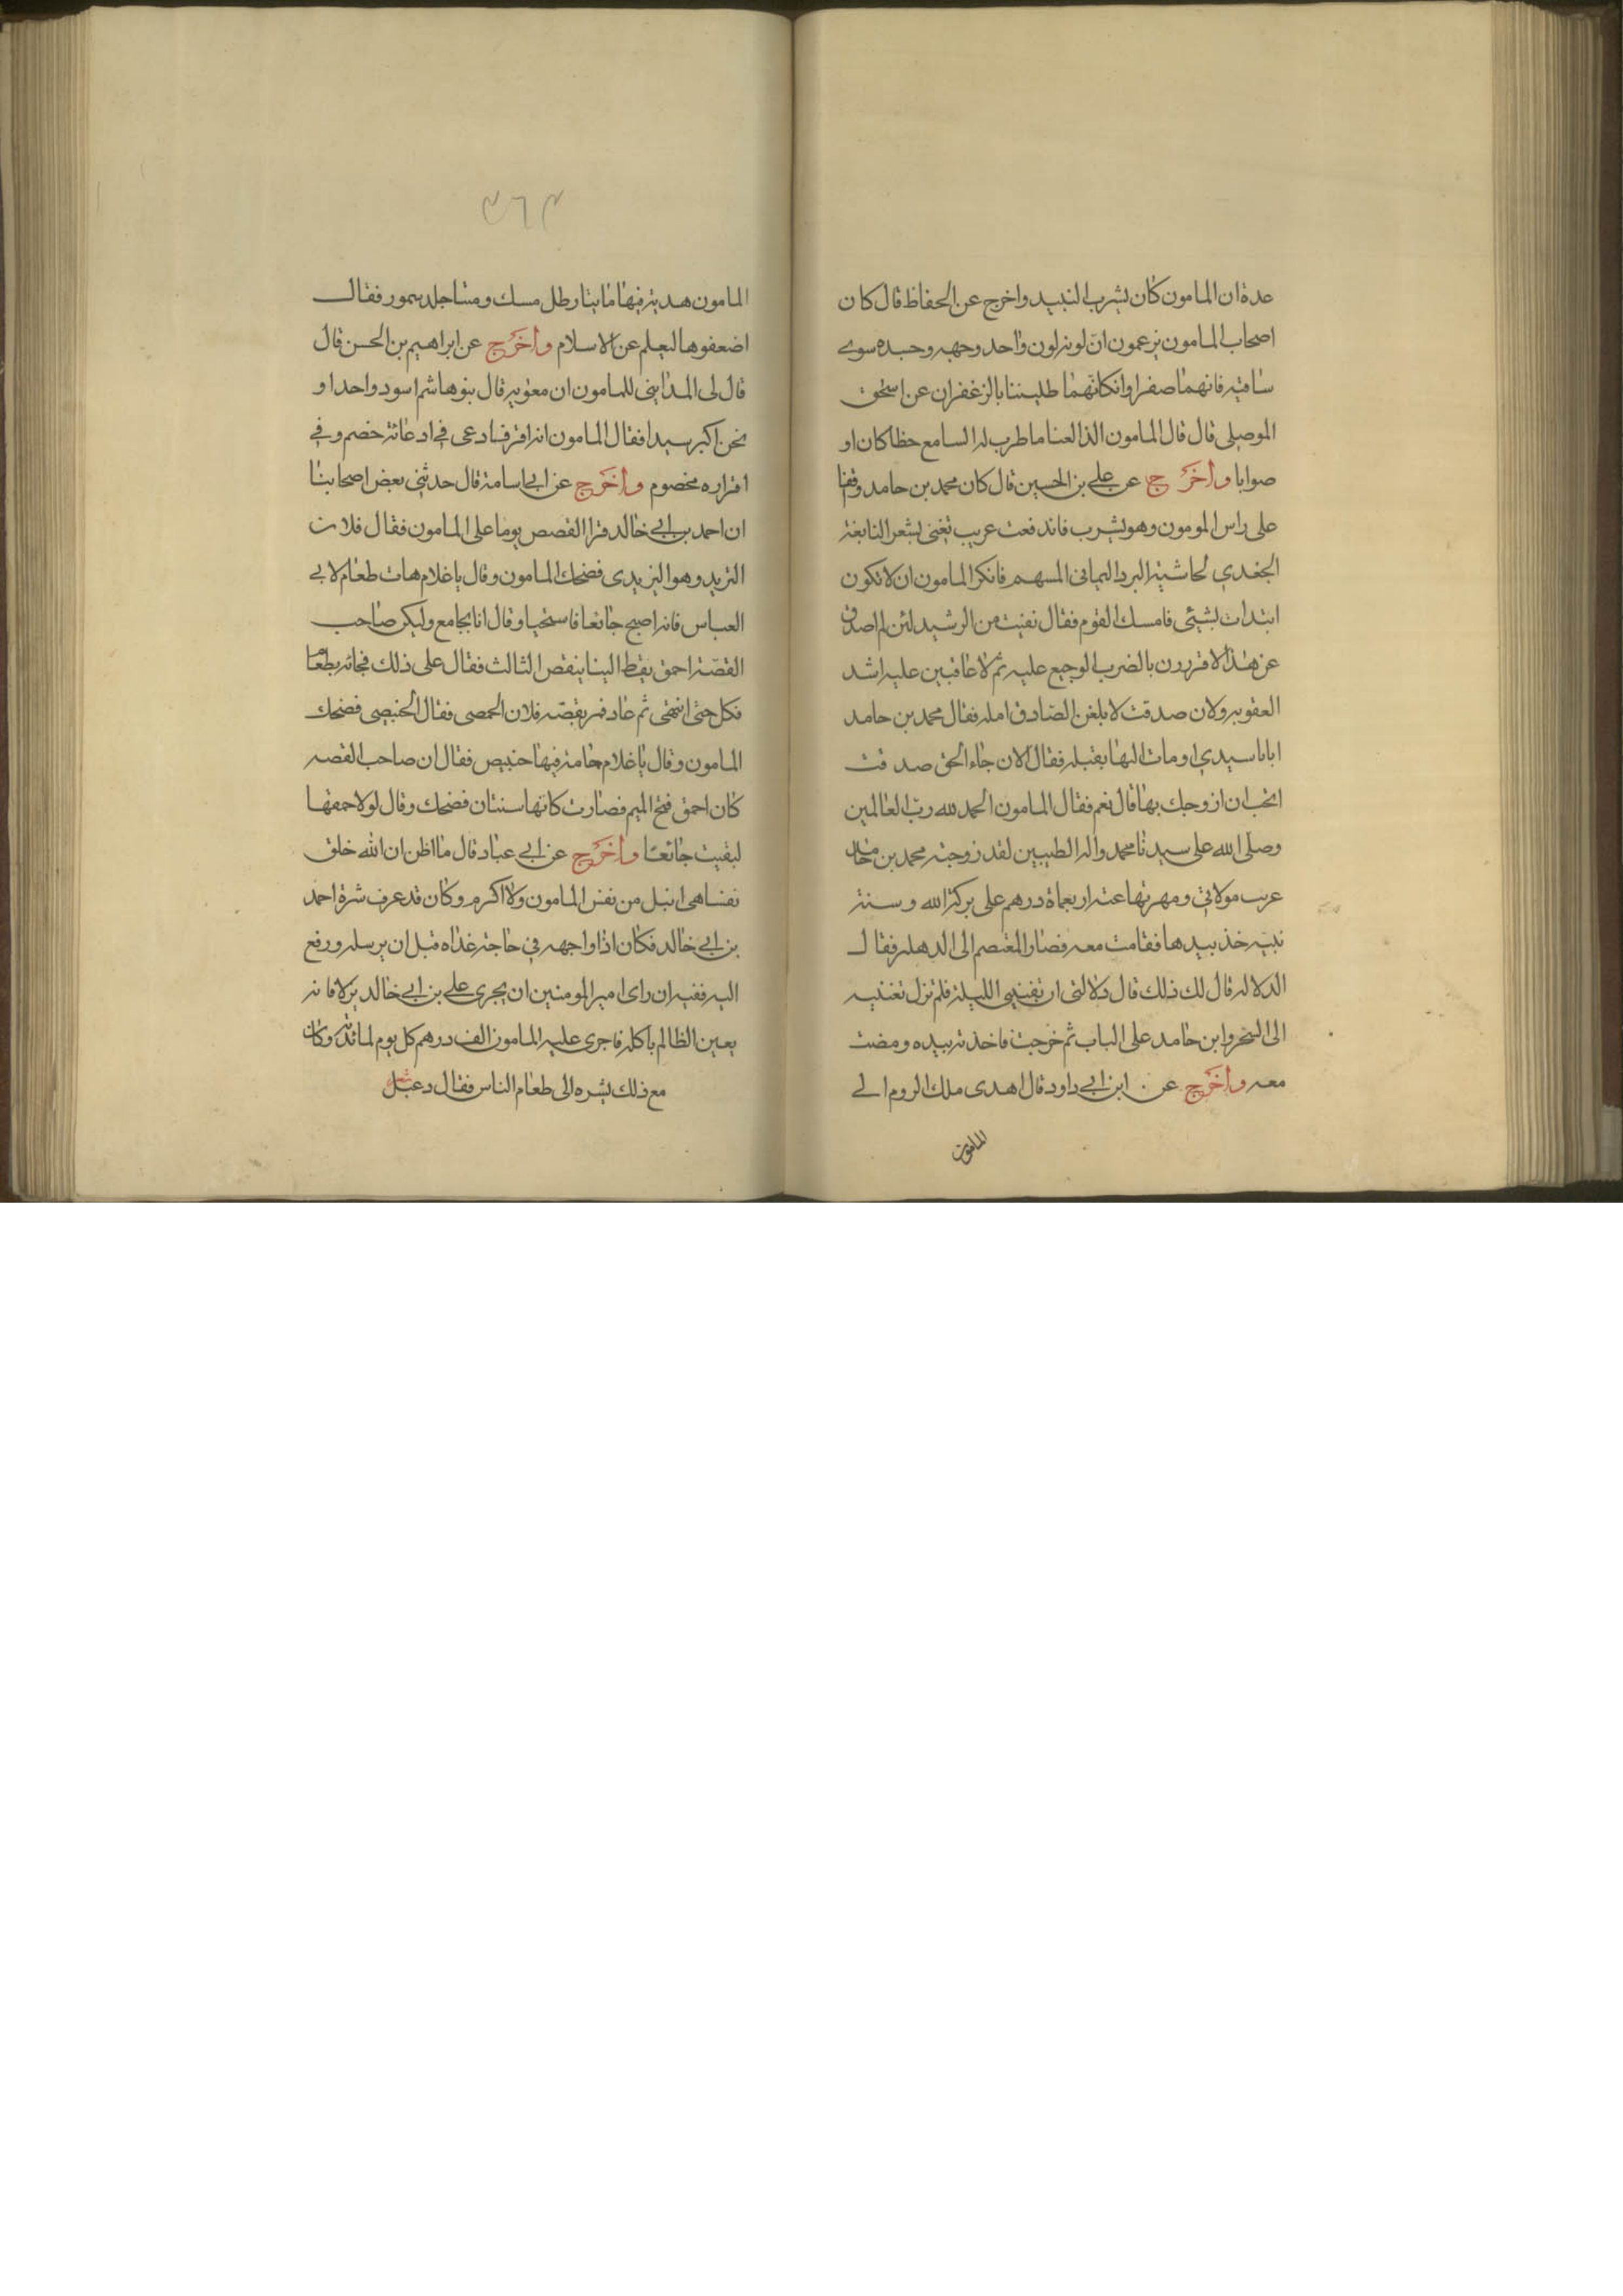 عدة ان المامون كان يشرب النبيد واخرج عن الحفاظ قال كان
اصحاب المامون يزعمون ان لو نه لون واحد وجهه وجسده سوى
ساقيه فانهما صفراوان كانهما طليتا بالزعفران عن اسحق
الموصلى قال قال المامون الذ الغنا ما طرب له السامع خطا كان او
صوابا واخرج عن علي بن الحسين قال كان محمد بن حامد وقفا
على راس المومون وهو يشرب فاندفعت عريب تغنى بشعر النابغة
الجغدي لحاشية البرد اليمانى المسهم فانكر المامون ان لا تكون
ابتدات بشيئى فامسك القوم فقال نفيت من الرشيد لئن لم اصدق
عن هذا لا قررون بالضرب الوجيع عليه ثم لا عاقبين عليه اشد
العقوبه ولان صدقت لا بلغن الصادق امله فقال محمد بن حامد
انا يا سيدي اومات اليها بقبله فقال الان جاء الحق صد قت
اتحب ان ازوجك بها قال نعم فقال المامون الحمد لله رب العالمين
وصلى الله على سيدنا محمد واله الطيبين لقد زوجته محمد بن حامد
عريب مولاتي ومهرتها عنه اربعماة درهم على بركة الله وسنة
نبيه خذ بيدها فقامت معه فصار المعتصم الى الدهله فقال
الدلاله قال لك ذلك قال دلالتى ان تغنيني الليلة فلم تزل تغنيه
الى السحر وابن حامد على الباب ثم خرجت فاخذته بيده ومضت
معه واخرج عن ابن ابي داود قال اهدى ملك الروم الي
المامون
٣٦٣
المامون هدية فيها مايتا رطل مسك ومئتا جلد سمور فقال
اضعفوها ليعلم عز الاسلام واخرج عن ابراهيم بن الحسن قال
قال لى المداينى للمامون ان معويه قال بنو هاشم اسود واحدا و
نحن اكبر سيدا فقال المامون انه اقر وادعى في ادعائه خصم وفي
اقراره مخصوم واخرج عن ابي اسامة قال حدثني بعض اصحابنا
ان احمد بن ابي خالد قرا القصص يوما على المامون فقال فلان
الثريد وهو اليزيدى فضحك المامون وقال يا غلام هات طعام لابي
العباس فانه اصبح جائعا فاستحيا وقال انا بجامع وليكن صاحب
القصة احمق نقط اليا بنقص الثالث فقال على ذلك فجائه بطعام
فكل حتى انتهى ثم عاد فمر بقصه فلان الحمصى فقال الخبيصى فضحك
المامون وقال يا غلام جامة فيها خبيص فقال ان صاحب القصه
كان احمق فتح الميم فصارت كانها سنتان فضحك وقال لولا حمقها
لبقيت جائعا واخرج عن ابي عباد قال ما اظن ان الله خلق
نفسا هى انبل من نفس المامون ولا اكرم وكان قد عرف شره احمد
بن ابي خالد فكان اذا واجهه في حاجة غذاه قبل ان يرسله ورفع
اليه فقيه ان راى امير المومنين ان يجرى على بن ابي خالد نزلا فانه
يعين الظالم باكله فاجرى عليه المامون الف درهم كل يوم لمائدته وكان
مع ذلك يشره الى طعام الناس فقال دعبل شعر